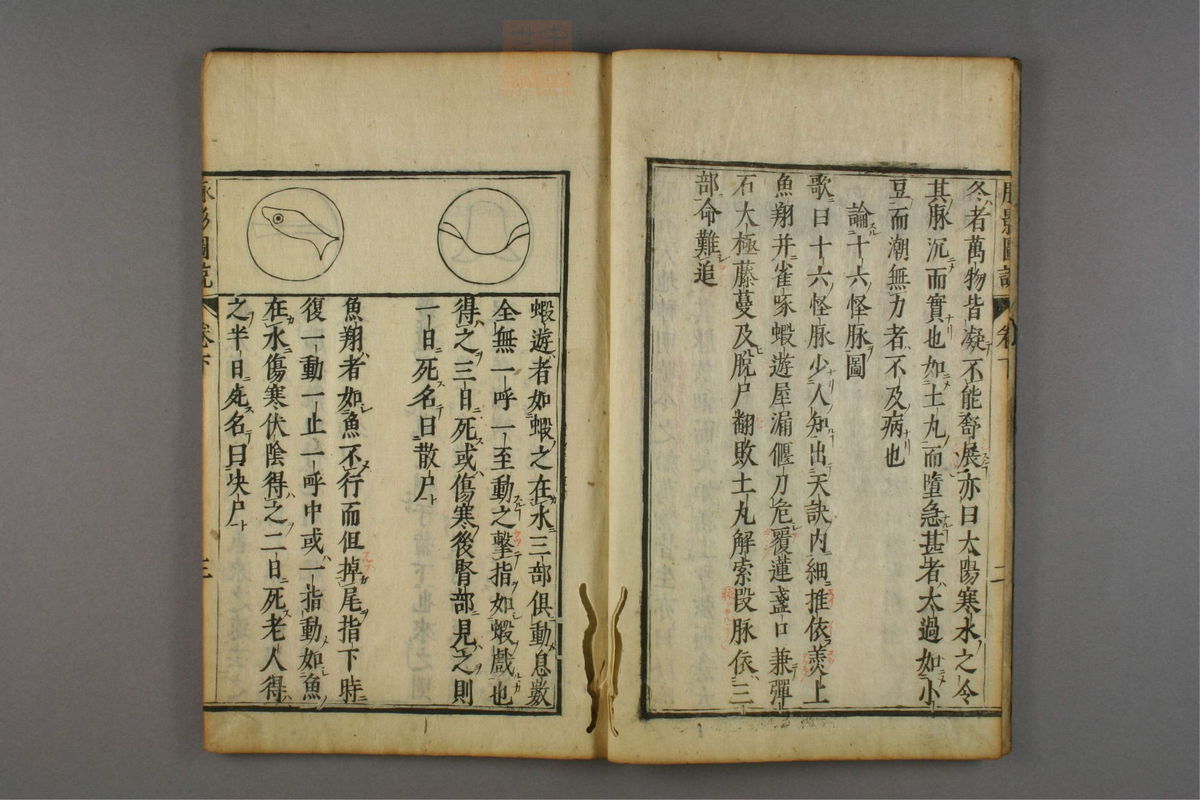 冬者萬物皆凝不能舒展亦曰太陽寒水之令
其脉沉而實也如土丸而墮急甚者太過如小
豆而潮無力者不及病也
論十六怪脉圖
歌曰十六怪脉少人知出天訣內細推依羨上
魚翔并雀啄蝦遊屋漏偃刀危覆蓮盞口兼彈
石大極藤蔓及脫尸翻敗土丸解索段脉依三
部命難追
脉影圖說
卷下
二
蝦遊者如蝦之在水三部俱動息數
全無一呼一至動之擊指如蝦戲也
得之三日死或傷寒後腎部見之則
一日死名曰散尸
魚翔者如魚不行而但掉尾指下時
復一動一止一呼中或一指動如魚
在水傷寒伏陰得之二日死老人得
之半日死名曰决尸
脉影圖說
卷下
三